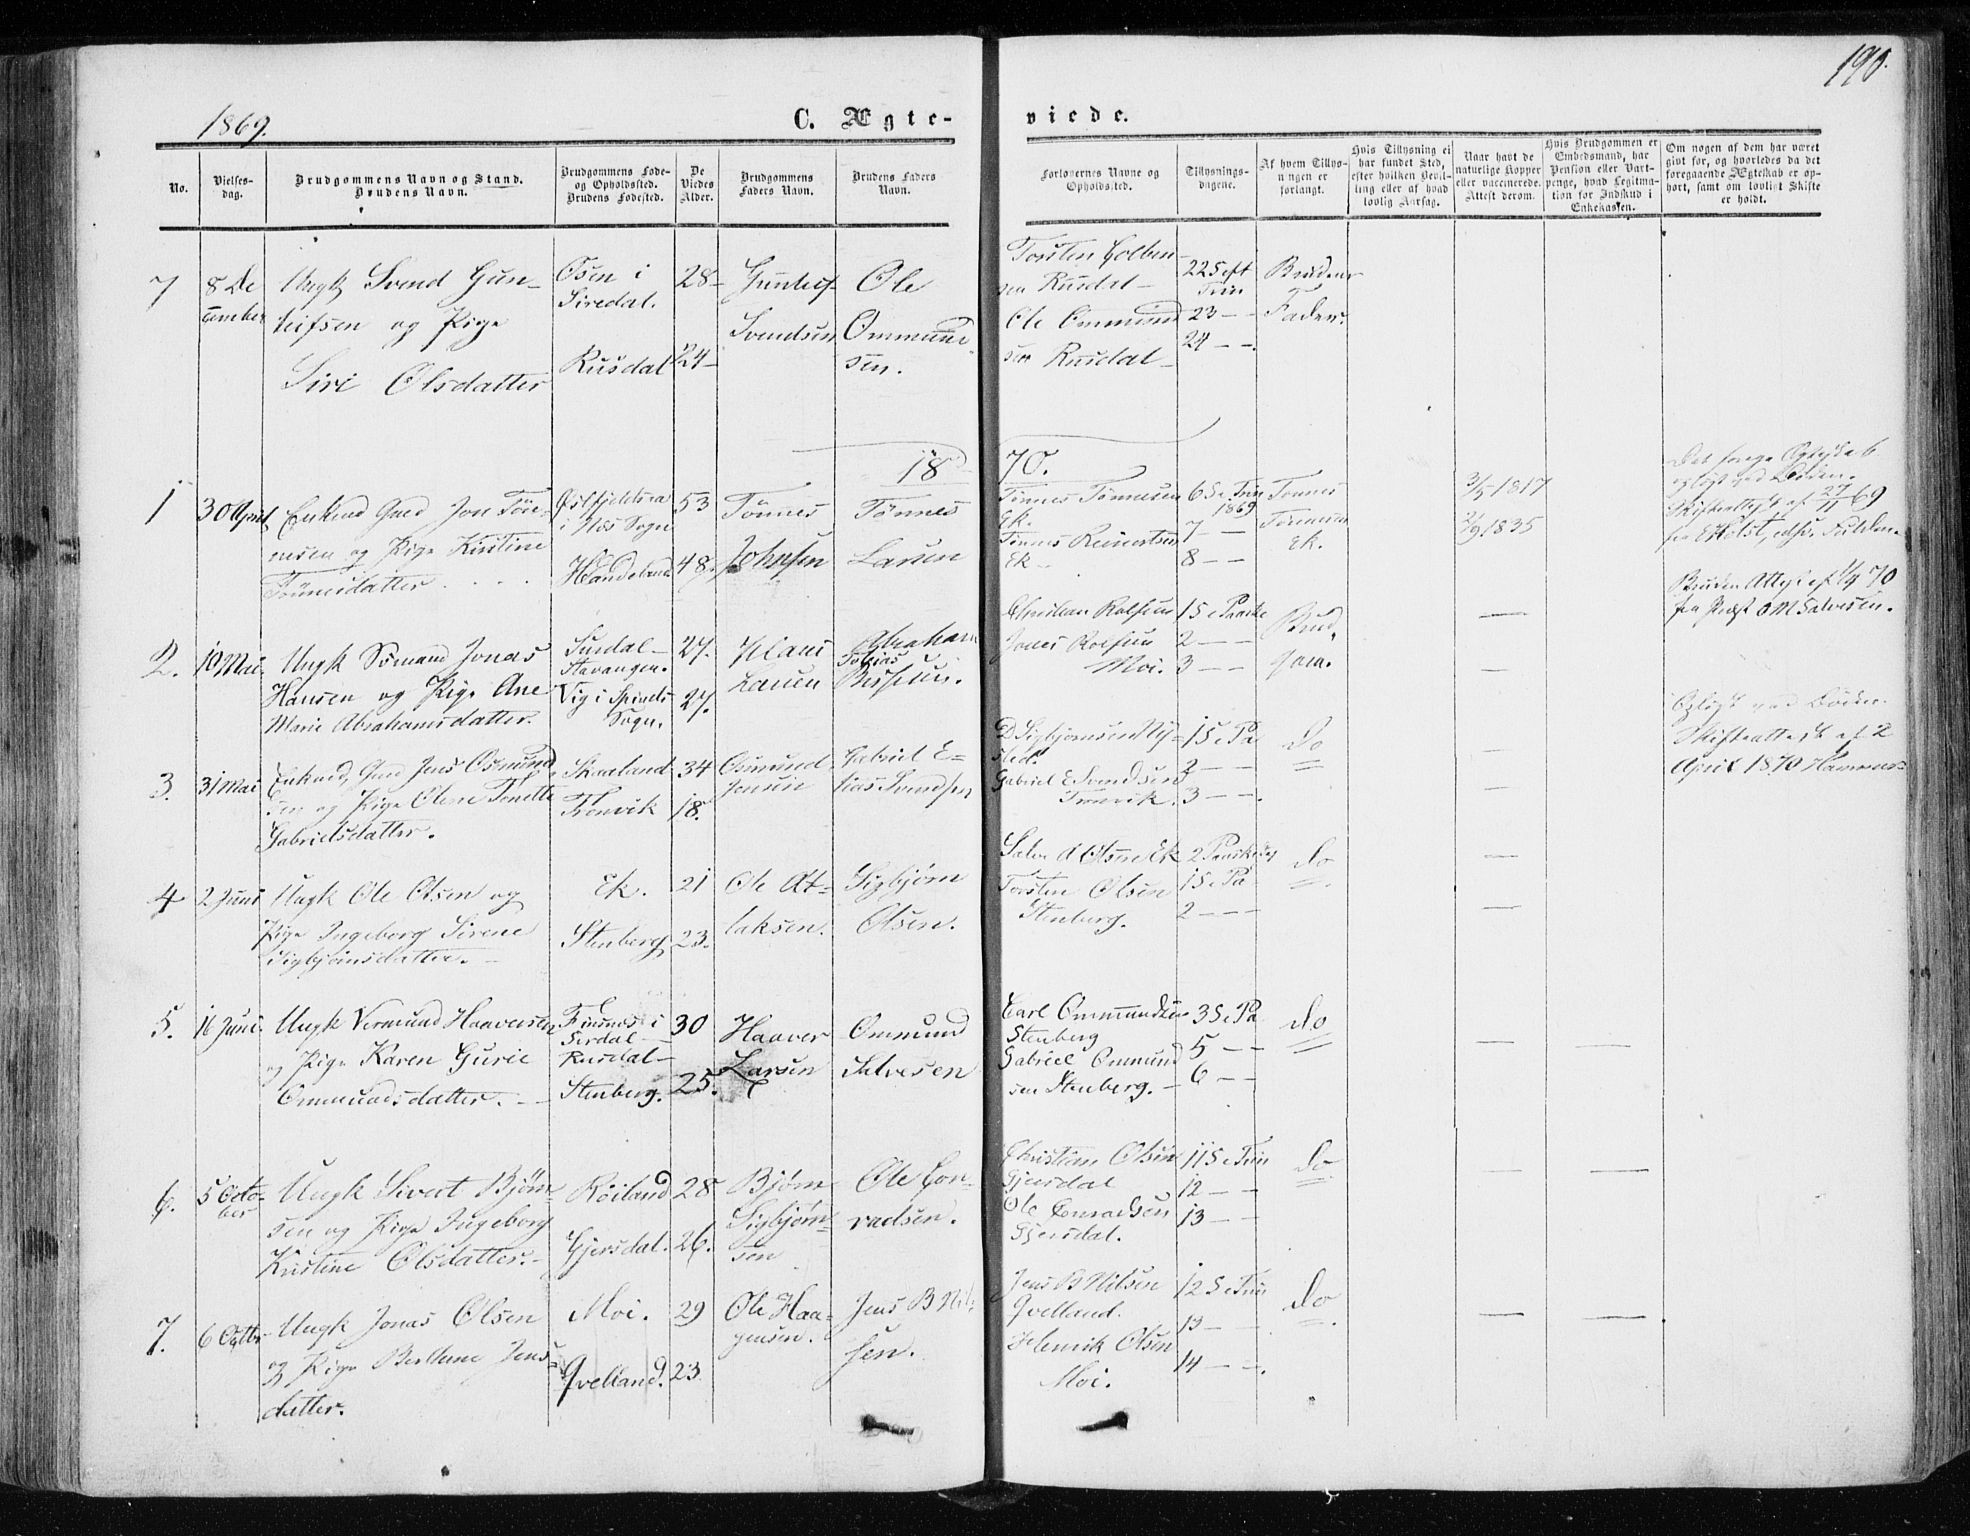 190.
1869.
C. Ægte-
viede.
No.
Vielses-
dag.
Brudgommens Navn og Stand.
Brudens Navn.
Brudgommens Føde-
og Opholdssted.
Brudens Fødested.
De
Viedes
Alder.
Brudgommens
Faders Navn.
Brudens Faders
Navn.
Forlovernes Navne og
Opholdssted.
Tillysnings-
dagene.
Af hvem Tillys-
ningen er
forlangt.
Hvis Tillysning ei
har fundet Sted,
efter hvilken Bevil-
ling eller af hvad
lovlig Aarsag.
Naar havt de
naturlige Kopper
eller vaccinerede.
Attest derom.
Hvis Brudgommen er
Embedsmand, har
Pension eller Vart-
penge, hvad Legitima-
tion for Indskud i
Enkekassen.
Om nogen af dem har været
gift før, og hvorledes da det
foregaaende Ægteskab er op-
hørt, samt om lovligt Skifte
er holdt.
7
8 De
cember
Ungk Svend Gun-
leifsen og Pige
Siri Olsdatter
Osen i
Siredal.
Rusdal
28-
24-
Gunleif
Svendsen
Ole
Ommund
sen.
Torsten
sen Rusdal-
Ole Ommund
sen Rusdal-
22 S eft
Trin
23 - -
24 - -.
Brudens
Fader.
1870.
1
30 April
Enkmd Gaed Jon Tøn-
nesen og Pige Kirstine
Tønnesdatter.
i Næs Sogn
Handeland
53
48.
Tønnes
Johnsen
Tønnes
Larsen
Tønnes Tønnesen
Ek.
Tønnes Reinertsen
Ek-
6 S e Trin
1869
7 -
8 - -
Tønnes
Tønnesen
Ek.
3/5 1817
2/9 1835
Skifteattest af 27/11 69
Bruden Attest af 1/4 70
fra Præst O M Salvesen.
2.
10 Mai.
Ungk Sømand Jonas
Hansen og Pige Ane
Marie Abrahamsdatter.
Stavanger.
Vig i Spinds
Sogn.
27.
27.
Hans
Larsen
Abraham
Tobias
Christian Rolfsen
Jonas Rolfsen
Moi.
1 S e Paaske
2 - -
3 - -
Brud,
gom.
3.
31 Mai
Enkmd, Gaed Jens Osmund
sen og Pige Elene Tonette
Gabrielsdatter.
Skaeland
Trønvik
34
18.
Osmund
Jensen
Gabriel E-
lias Svendsen
D Sigbjørnsen Ny-
sted.
Gabriel E Svendsen
Trønvik.
1 S e Pa
2 - -
3 - -.
do
Skifteattest af 2
April 1870
4
2 Juni
Ungk Ole Olsen og
Pige Ingeborg Sirene
Sigbjørnsdatter.-
Ek.
Stenberg
21
23.
Ole At-
laksen.
Sigbjørn
Olsen.
Salve A Olsen Ek
Torsten Olsen
Stenberg.
2 Paaskedag
1 S e Pa
2 - - -
do
5.
16 Juni.
Ungk Vermund Haaversen
og Pige Karen Gurie
Ommundsdatter. - -
Finsnes i
Sirdal-
Rusdal-
Stenberg.
30
25.
Haaver
Larsen
Ommund
Salvesen
Carl Ommundsen
Stenberg
Gabriel Ommund
sen Stenberg.-
3 S e Pa
5 - -
6 - -
do
6.
5 Octo-
ber
Ungk Sivert Bjørn-
sen og Pige Ingeborg
Kristine Olsdatter.-
Røiland
Gjersdal.
28
26.
Bjørn
Sigbjørn-
sen
Ole Con-
radsen.
Christian Olsen
Gjersdal
Ole Conradsen
Gjersdal.
11 S e Trin
12 - -
13 - -
do
7.
6 Octbr
Ungk Jonas Olsen
og Pige Berthine Jens-
datter.
Moi.
Qvelland.
29
23.
Ole Haa-
gensen.
Jens B Nil-
sen.
Jens B Nilsen
Qvelland.
Henrik Olsen
Moi.
12 S e Trin
13 - -
14 - -.
do